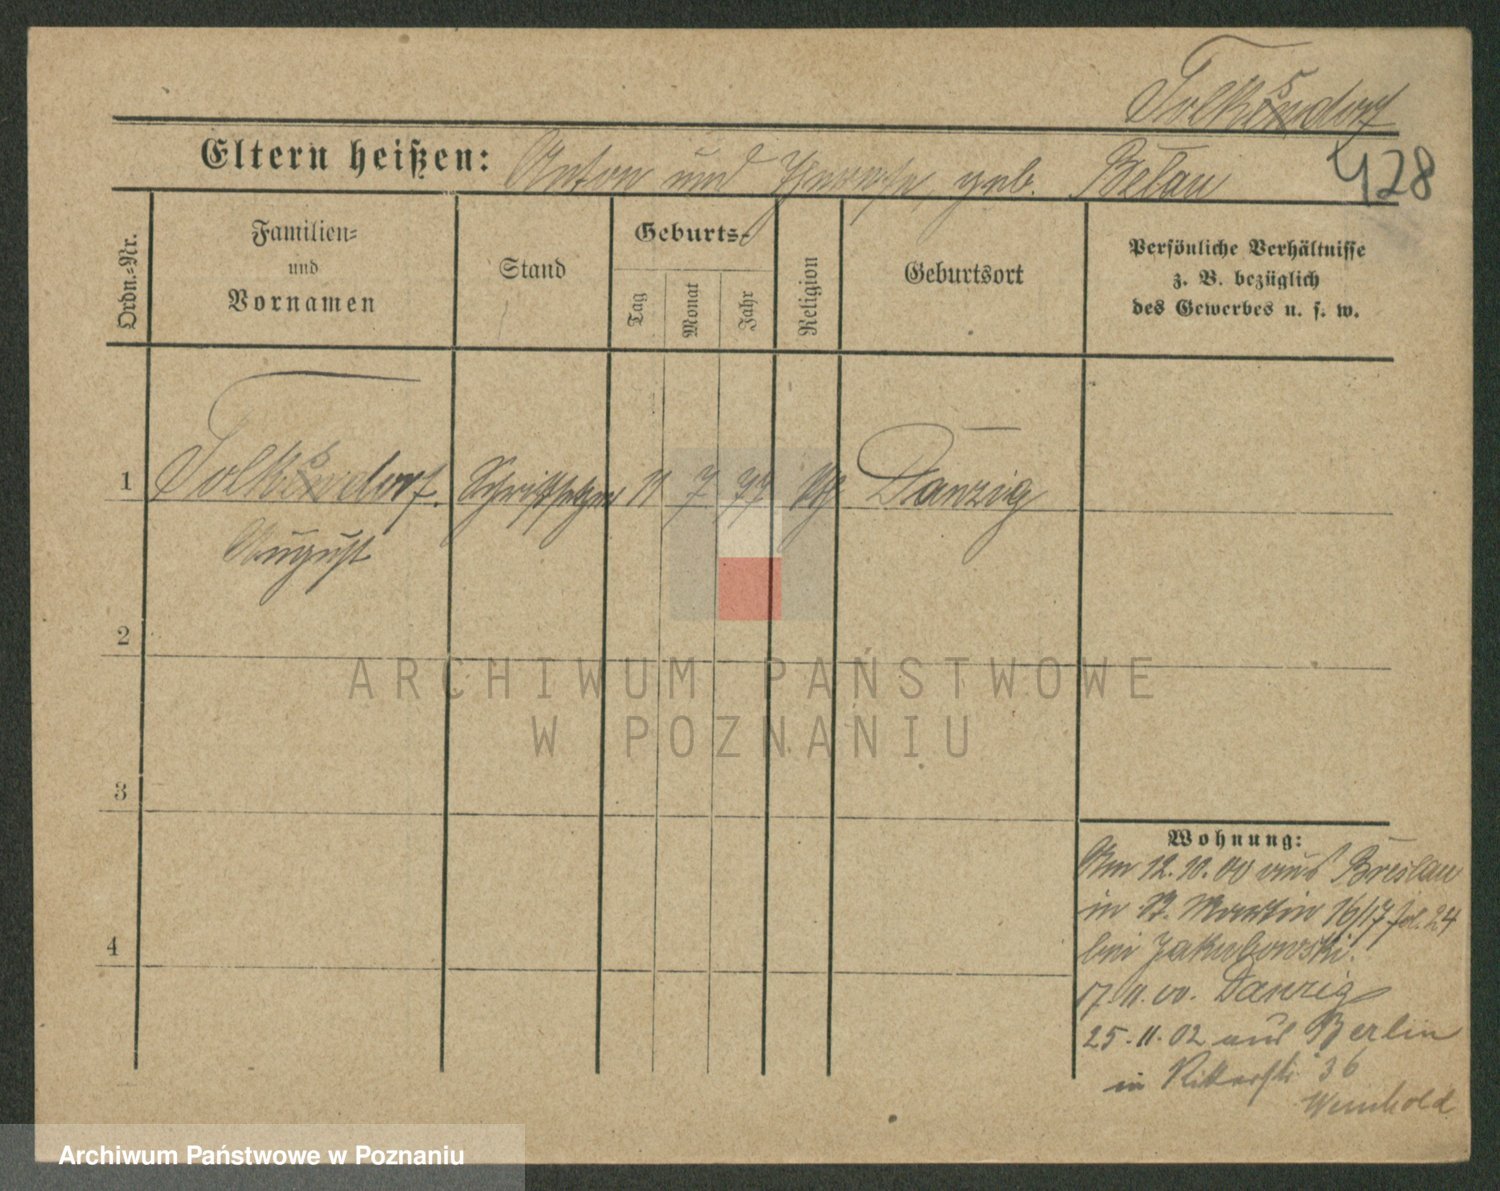 Tolksdorf
Eltern heißen: Anton und Therese geb. Belau
428
Ordn.-Nr.
Familien-
und
Vornamen
Stand
Geburts-
Tag
Monat
Jahr
Religion
Geburtsort
Persönliche Verhältnisse
z. B. bezüglich
des Gewerbes u. s. w.
1 Tolksdorf Schriftsetzer 11 7 77 Danzig
August
2
3
4
Wohnung:
Am 12.10.00 aus Breslau
in St. Martin 16/17 fol. 24
bei Jakubowski.
17.11.00. Danzig
25.11.02 aus Berlin
in Ritterstr 36
Weinhold
ARCHIWUM PAŃSTWOWE
W POZNANIU
Archiwum Państwowe w Poznaniu